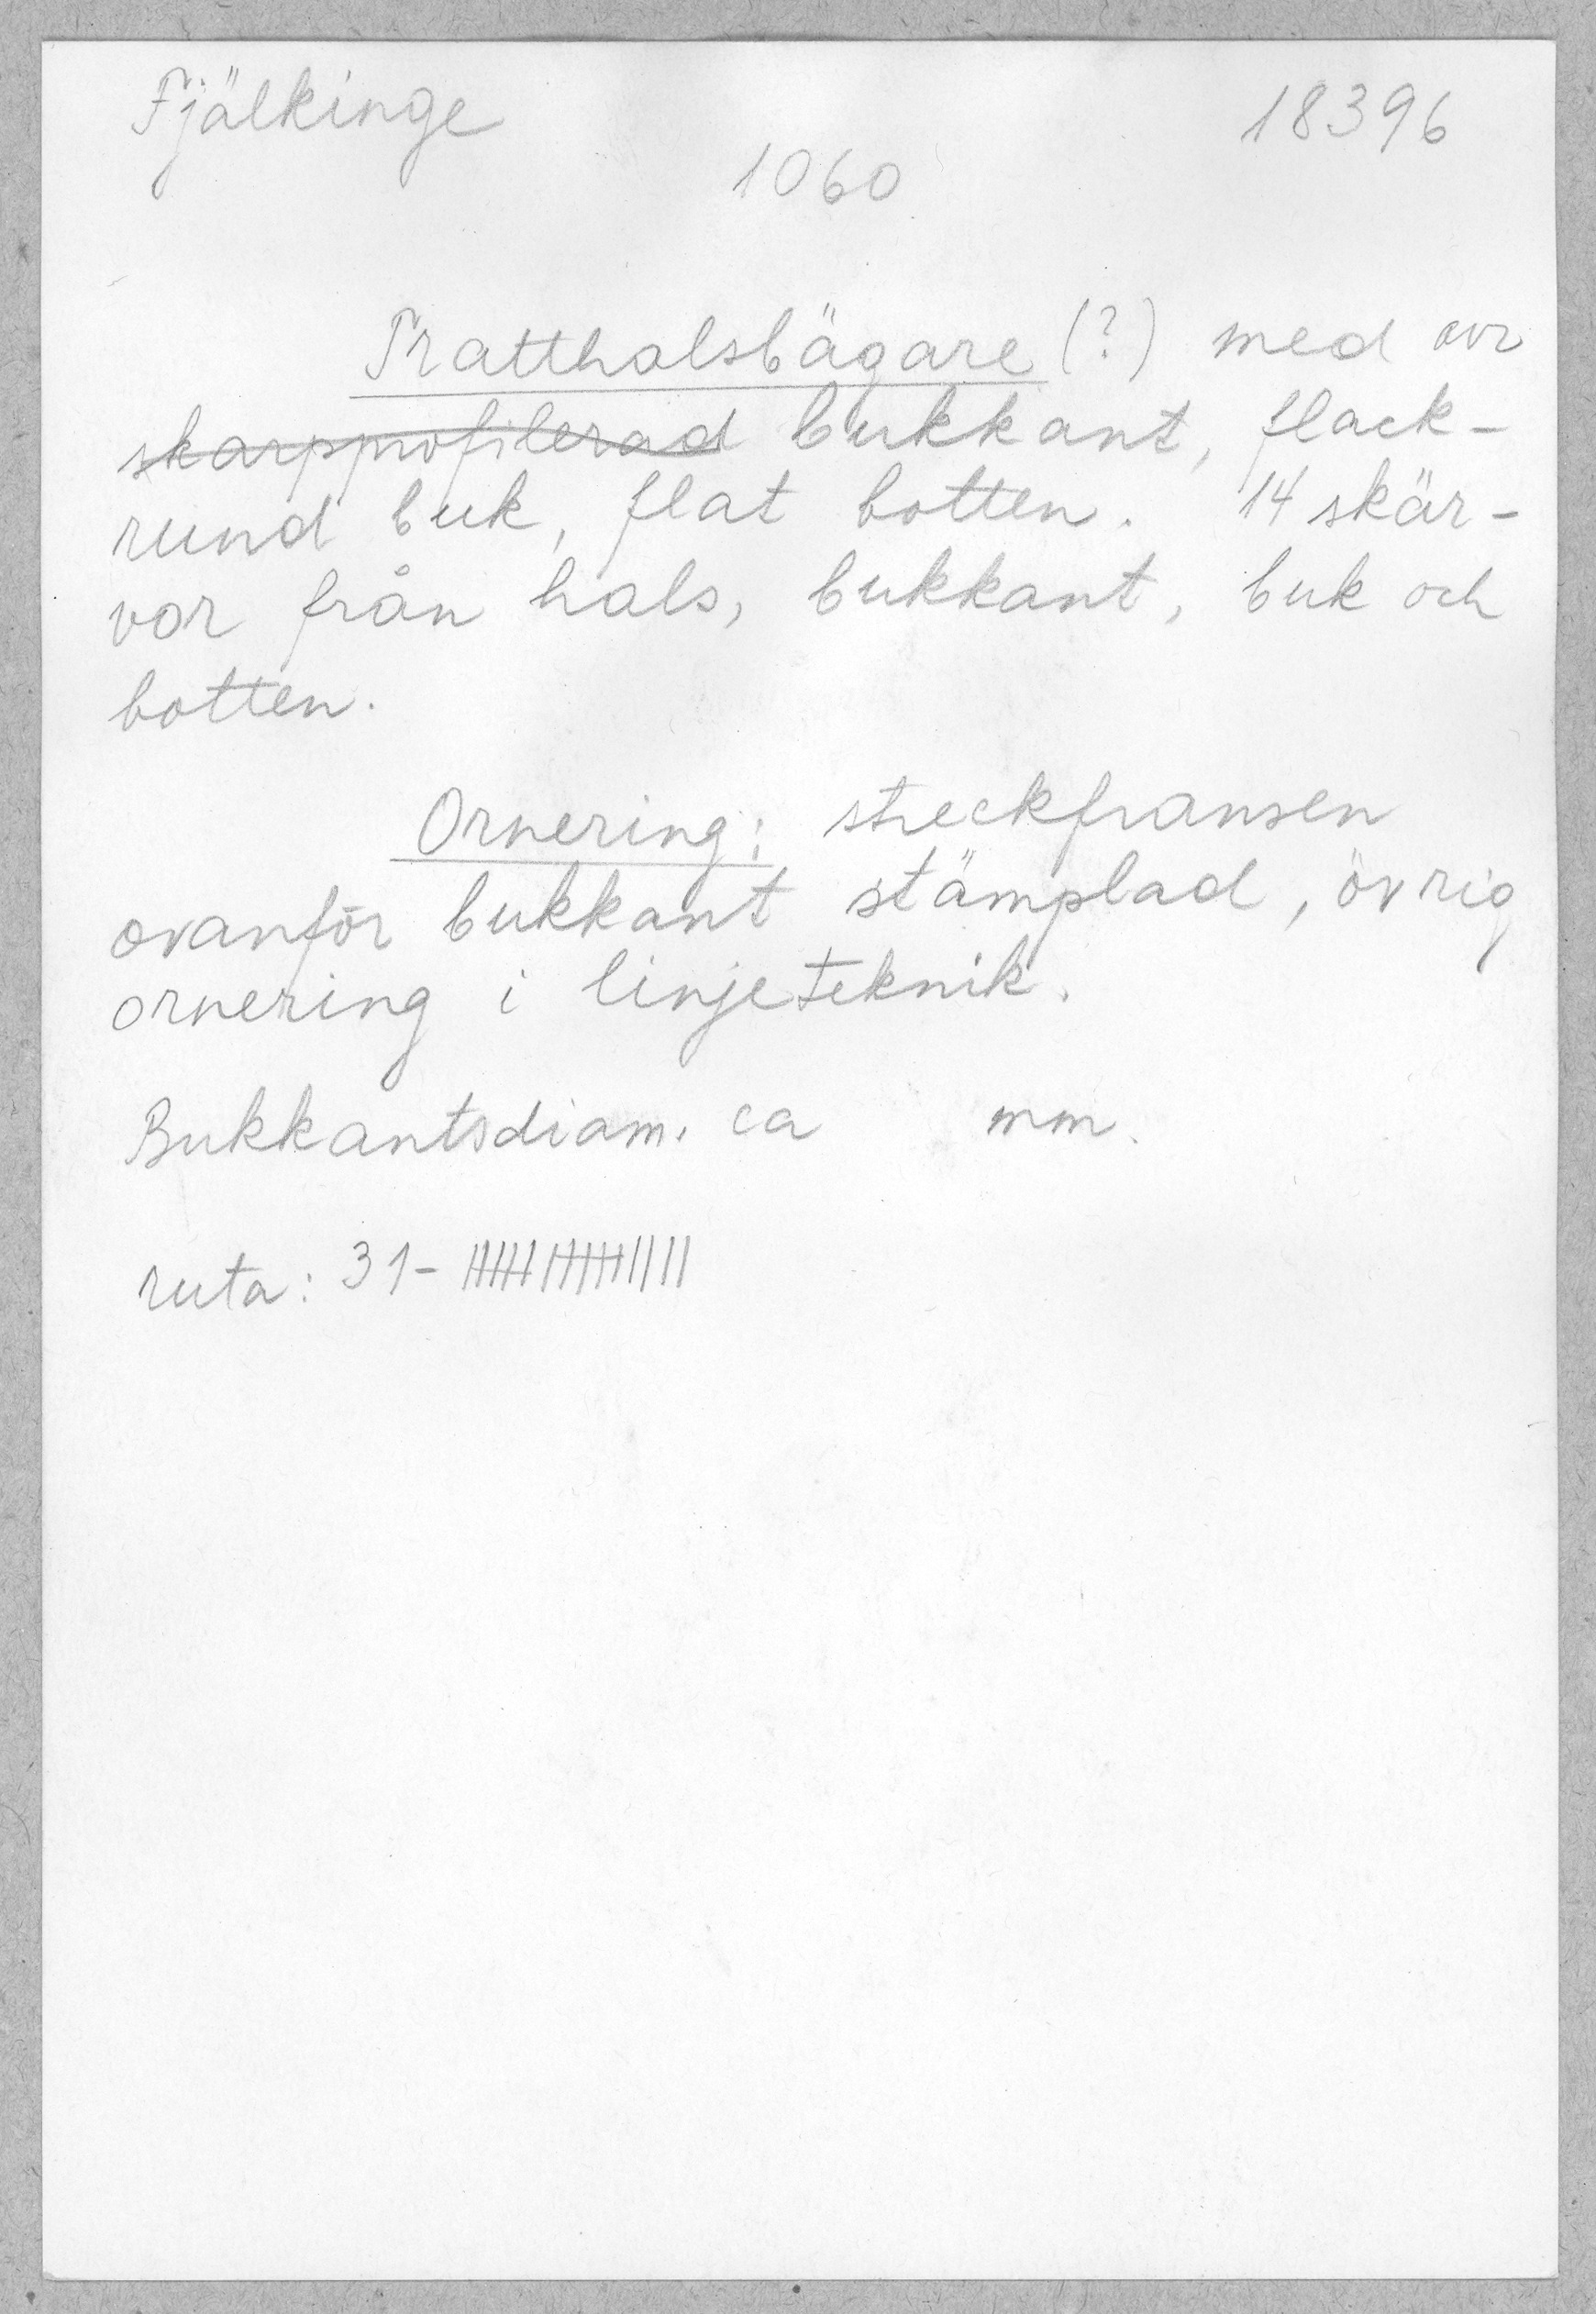 Fjälkinge
18396
1060
Tratthalsbägare (?) med avr
skarpprofilerad bukkant, flack-
rund buk, flat botten. 14 skär-
vor från hals, bukkant, buk och
botten.
Ornering: streckfransen
ovanför bukkant stämplad, övrig
ornering i linjeteknik.
Bukkantsdiam. ca mm.
ruta: 31-